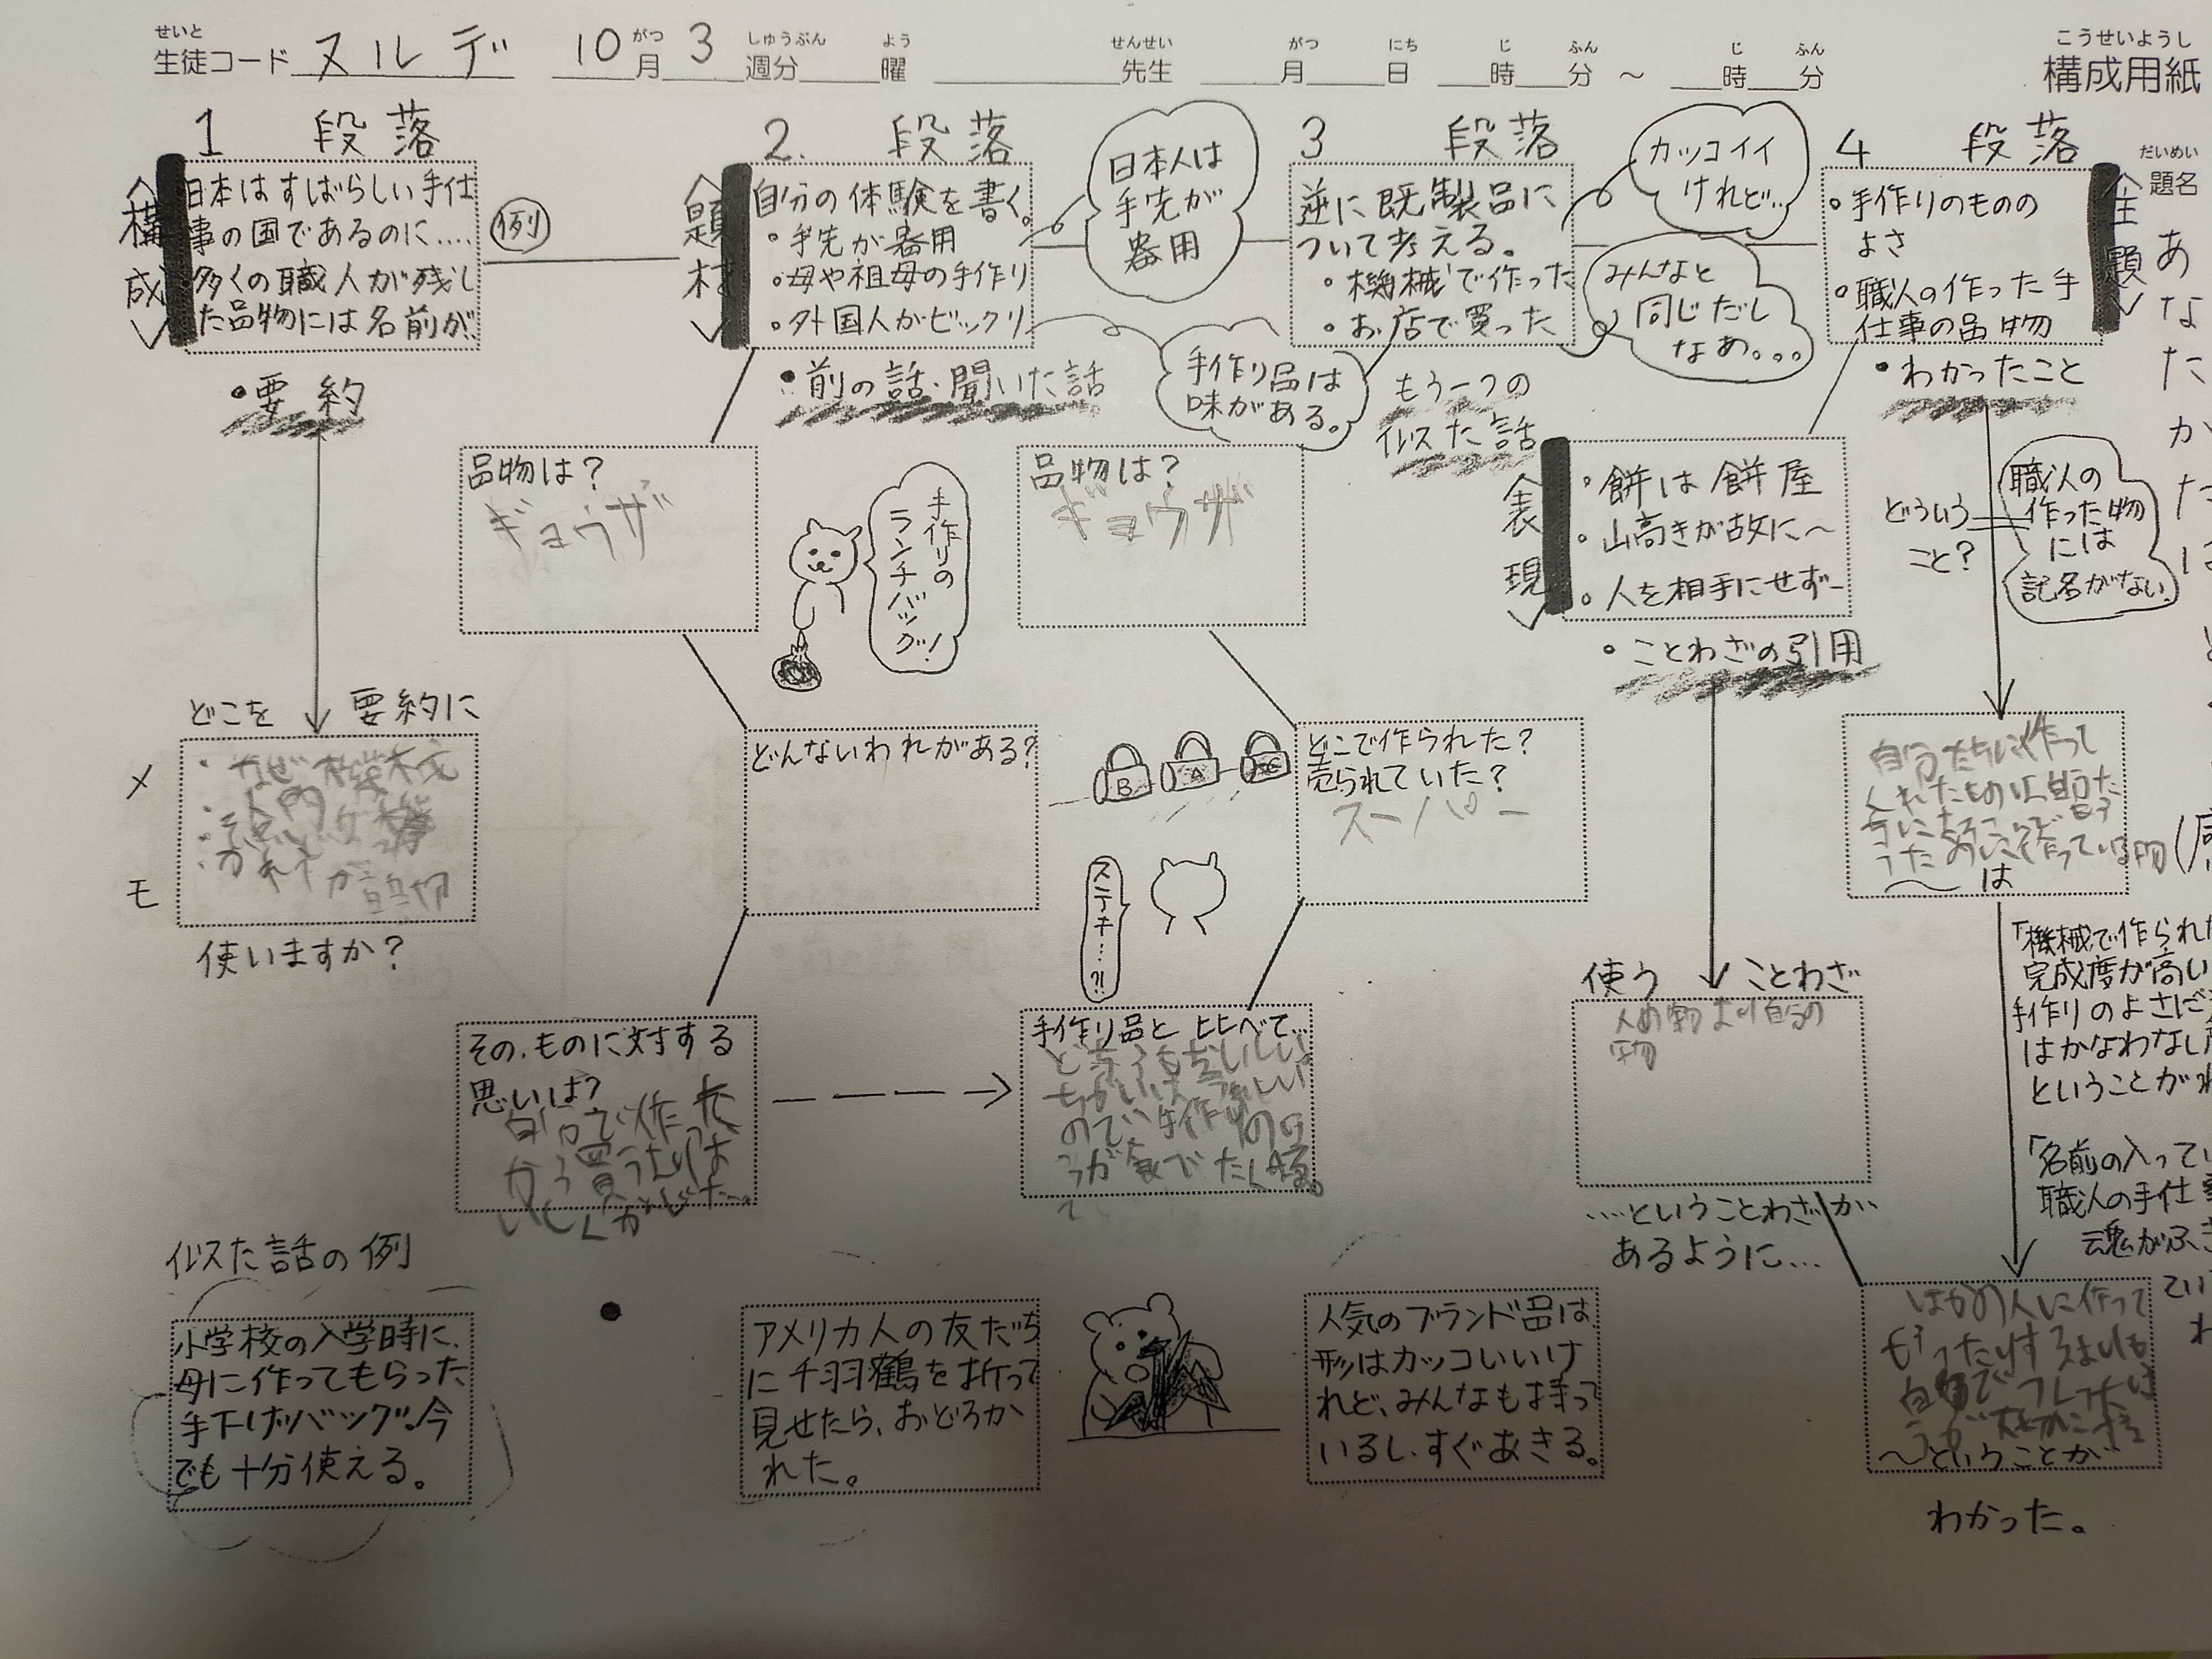 せいと
生徒コード ヌルデ 10 がつ 月 3 しゅうぶん 週分 よう 曜 せんせい 先生 がつ 月 にち 日 じ 時 ふん 分 ～ じ 時 ふん 分
こうせいようし
構成用紙
だいめい
題名
あなたかた
1 段落
＜構成＞
日本はすばらしい手仕
事の国であるのに‥‥
多くの職人が残し
た品物には名前が‥
・要約
どこを 要約に
メモ
・なぜ機械
使いますか？
例
2. 段落
＜題材＞
自分の体験を書く。
・手先が器用
・母や祖母の手作り
・外国人がビックリ
・前の話・聞いた話
日本人は
手先が
器用
手作り品は
味がある。
品物は？
ギョウザ
手作りの
ランチバッグ！
どんないわれがある？
その、ものに対する
思いは？
自分で作った
ほう買うたりは
3 段落
逆に既製品に
ついて考える。
・機械で作った
・お店で買った
カッコイイ
けれど‥
みんなと
同じだし
なぁ。。。
もう一つの
似た話
品物は？
ギョウザ
B A C
どこで作られた？
売られていた？
スーパー
ステキ…?!
手作り品と比べて…
4 段落
＜主題＞
・手作りのものの
よさ
・職人の作った手
仕事の品物
・わかったこと
どういう
こと？
職人の
作った物
には
記名がない。
＜表現＞
・餅は餅屋
・山高きが故に～
・人を相手にせず－
・ことわざの引用
使う ことわざ
‥‥ということわざが
あるように…
自分たちに作って
～は
「機械で作られた
完成度が高い
手作りのよさに
はかなわない
ということがわ
「名前の入ってい
職人の手仕事
魂がふき
てい
わ
ほかの人に作って
もらったりするよりも
～ということが
わかった。
似た話の例
小学校の入学時に、
母に作ってもらった
手下げバッグ。今
でも十分使える。
アメリカ人の友だち
に千羽鶴を折って
見せたら、おどろか
れた。
人気のブランド品は
形はカッコいいけ
れど、みんなも持って
いるし、すぐあきる。